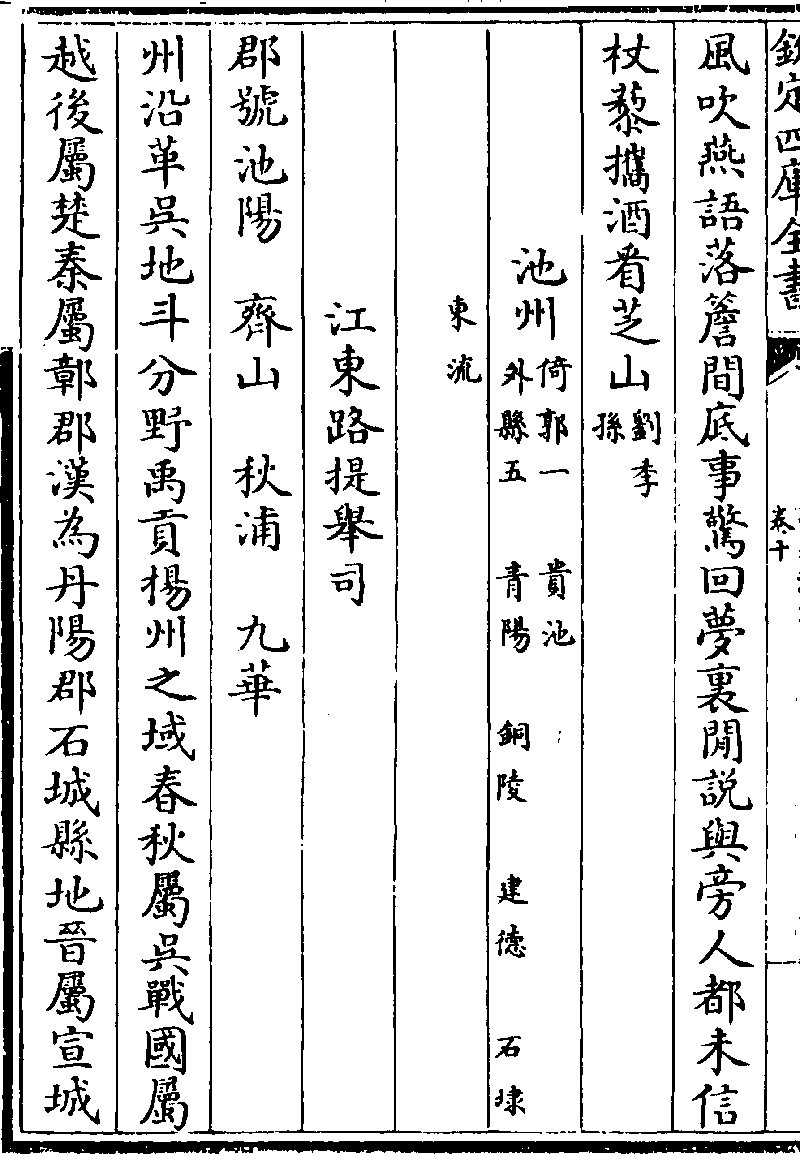 欽定四庫全書
卷十
風吹燕語落簷間底事驚回夢裏閒說與旁人都未信
杖藜攜酒看芝山劉季
孫
池州倚郭一 貴池
外縣五 青陽 銅陵 建德 石埭
東流
江東路提舉司
郡號池陽 齊山 秋浦 九華
州沿革吳地斗分野禹貢揚州之域春秋屬吳戰國屬
越後屬楚秦屬鄣郡漢為丹陽郡石城縣地晉屬宣城